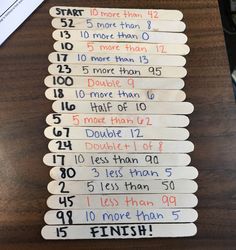 START 10 more than 42
52 5 more than 8
13 10 more than 0
10 5 more than 12
17 10 more than 13
23 5 more than 95
100 Double 9
18 10 more than 6
16 Half of 10
5 5 more than 62
67 Double 12
24 Double +1 of 8
17 10 less than 90
80 3 less than 5
2 5 less than 50
45 1 less than 99
98 10 more than 5
15 FINISH!